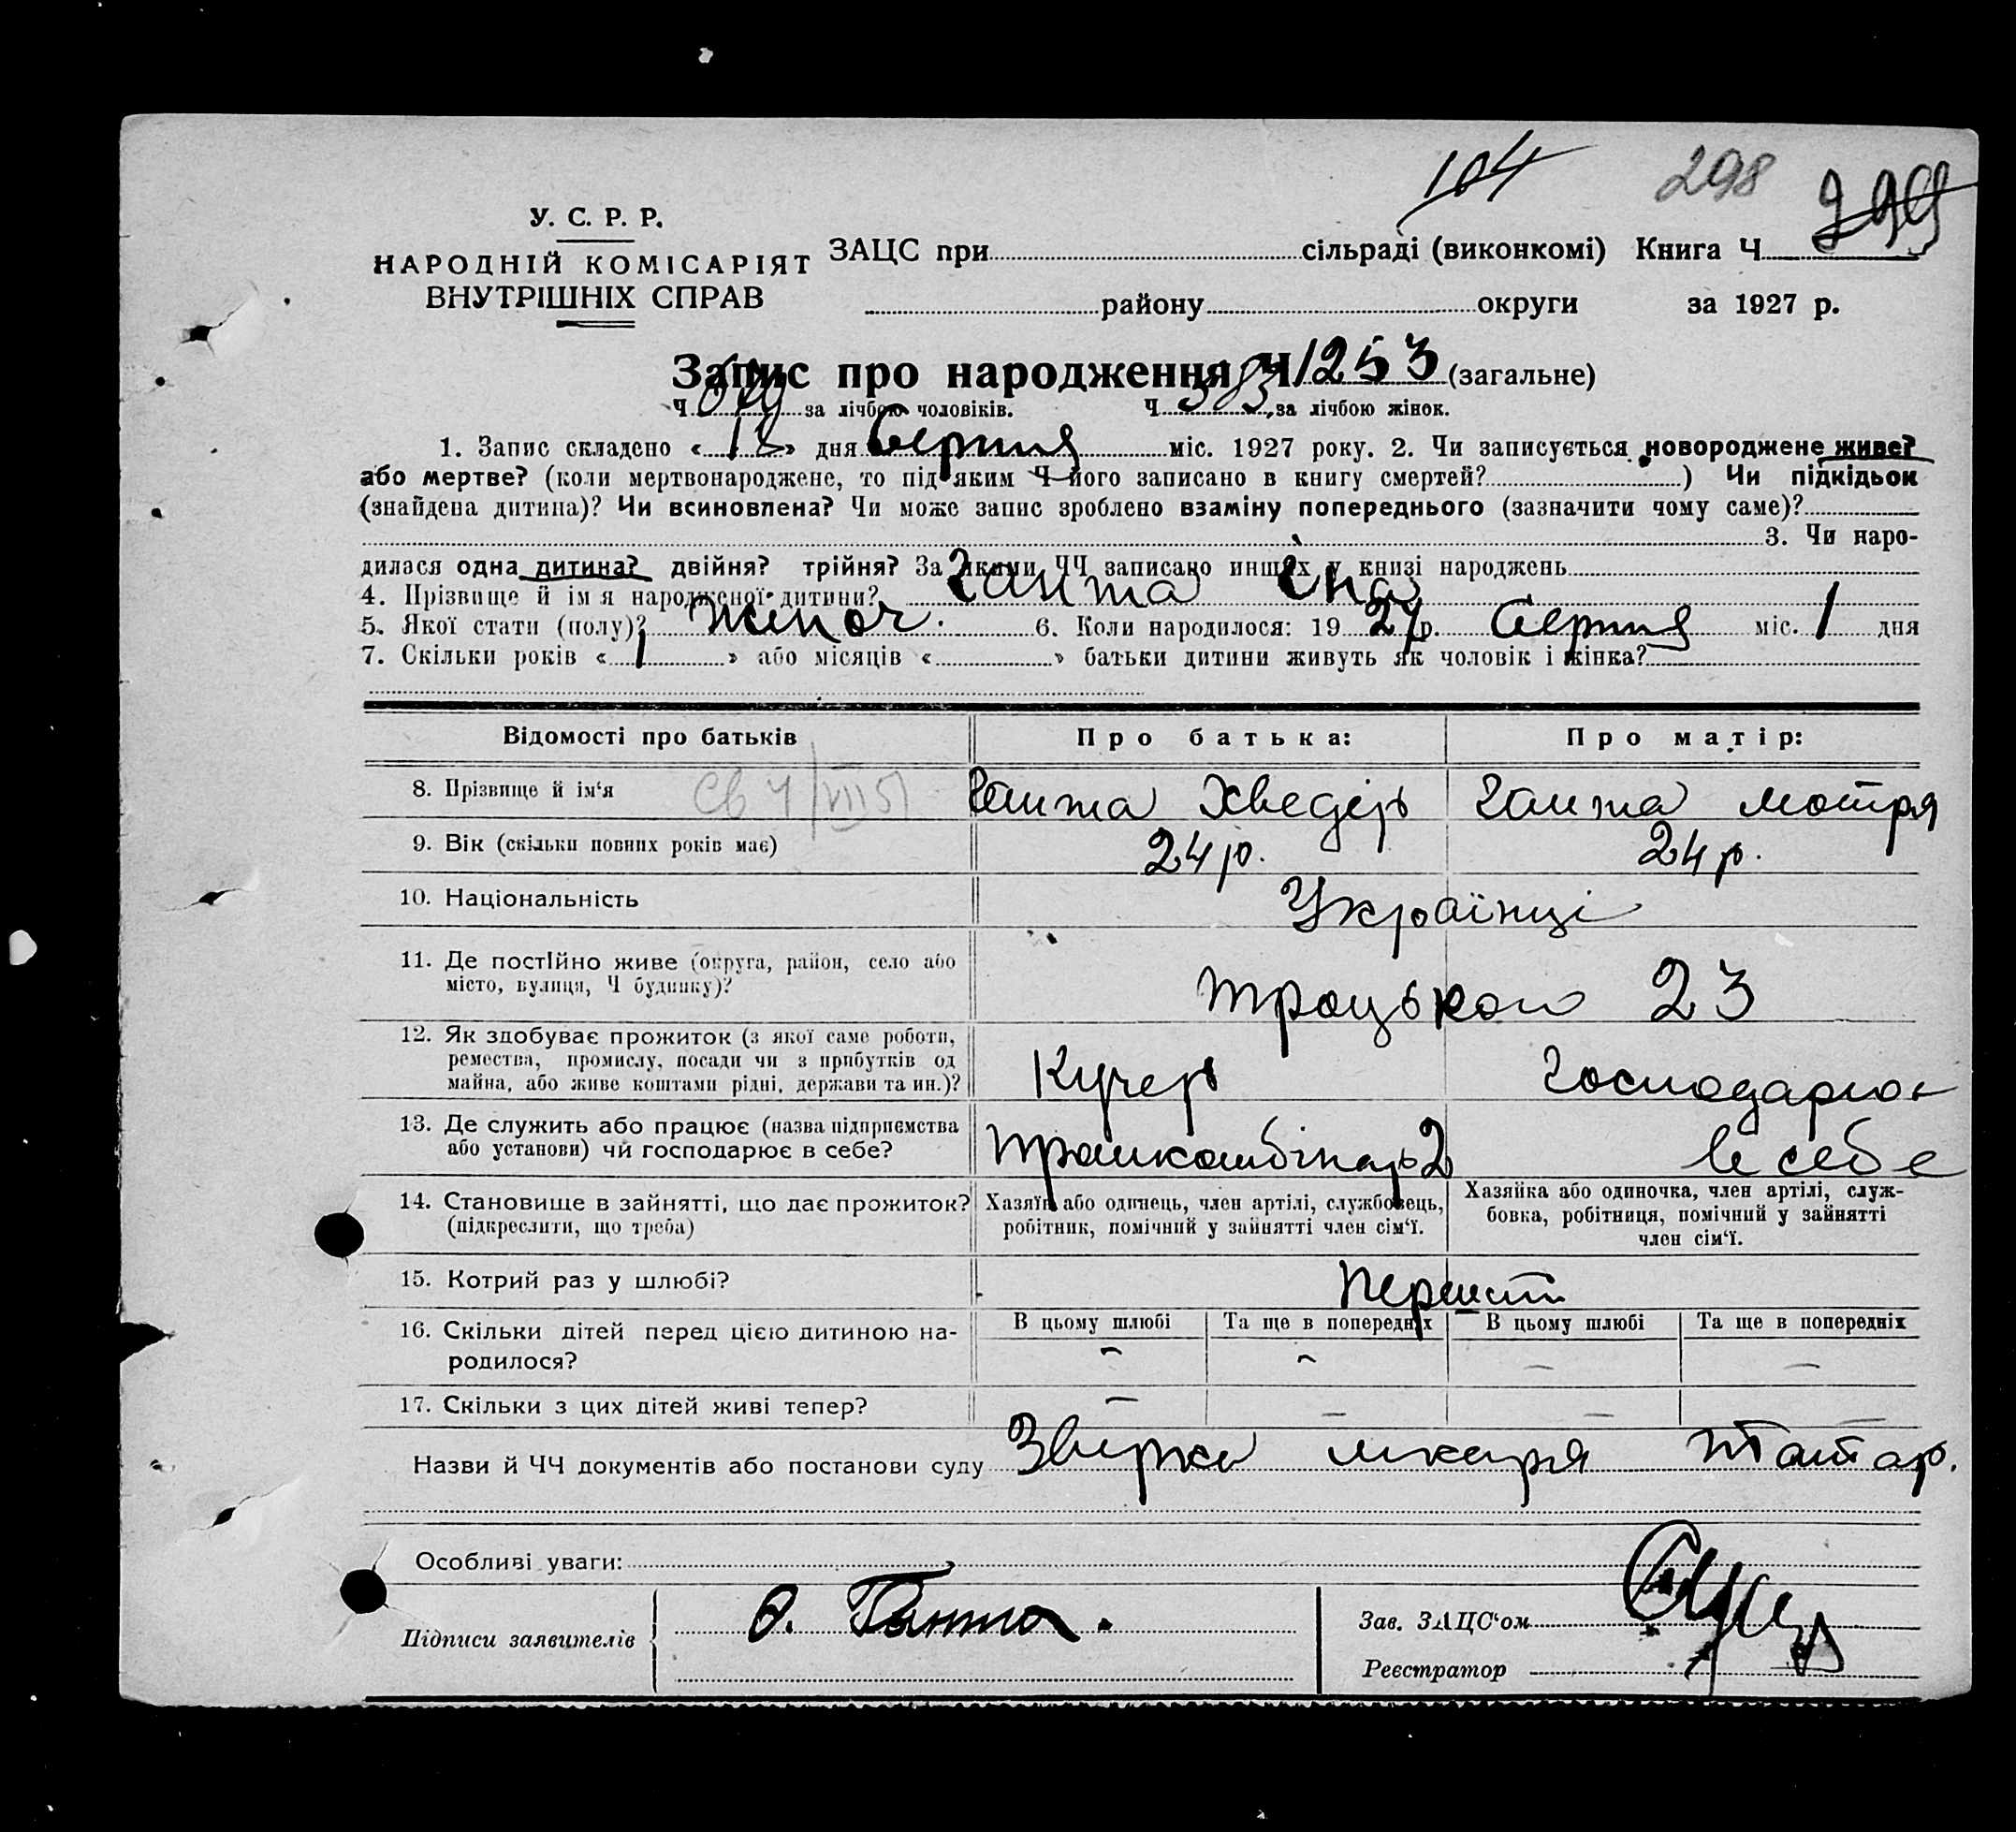 104 298 299
У. С. Р. Р.
НАРОДНІЙ КОМІСАРІЯТ
ВНУТРІШНІХ СПРАВ
ЗАЦС при сільраді (виконкомі) Книга Ч
району округи за 1927 р.
Запис про народження Ч 1253 (загальне)
Ч за лічбою чоловіків. Ч 583 за лічбою жінок.
1. Запис складено « » дня Серпня міс. 1927 року. 2. Чи записується новороджене живе?
або мертве? (коли мертвонароджене, то під яким Ч його записано в книгу смертей? ) Чи підкідьок
(знайдена дитина)? Чи всиновлена? Чи може запис зроблено взаміну попереднього (зазначити чому саме)?
3. Чи наро-
дилася одна дитина? двійня? трійня? За якими ЧЧ записано инших у книзі народжень
4. Прізвище й ім я народженої дитини? Ганта
5. Якої стати (полу)? жіноч. 6. Коли народилося: 1927 р. Серпня міс. 1 дня
7. Скільки років « 1 » або місяців « » батьки дитини живуть як чоловік і жінка?
Відомості про батьків Про батька: Про матір:
8. Прізвище й ім'я Ганта Хведір Ганта Мотря
9. Вік (скільки повних років має) 24 р. 24 р.
10. Національність Українці
11. Де постійно живе (округа, район, село або
місто, вулиця, Ч будинку)? Троцького 23
12. Як здобуває прожиток (з якої саме роботи,
ремества, промислу, посади чи з прибутків од
майна, або живе коштами рідні, держави та ин.)? Кучер
13. Де служить або працює (назва підприємства
або установи) чи господарює в себе? в себе
14. Становище в зайнятті, що дає прожиток?
(підкреслити, що треба)
Хазяїн або одинець, член артілі, службовець,
робітник, помічний у зайнятті член сім'ї.
Хазяйка або одиночка, член артілі, служ-
бовка, робітниця, помічний у зайнятті
член сім'ї.
15. Котрий раз у шлюбі?
16. Скільки дітей перед цією дитиною на-
родилося?
В цьому шлюбі Та ще в попередніх В цьому шлюбі Та ще в попередніх
— — — —
17. Скільки з цих дітей живі тепер? — — — —
Назви й ЧЧ документів або постанови суду лікаря Татар.
Особливі уваги:
Підписи заявителів Ѳ. Ганта.
Зав. ЗАЦС'ом
Реєстратор